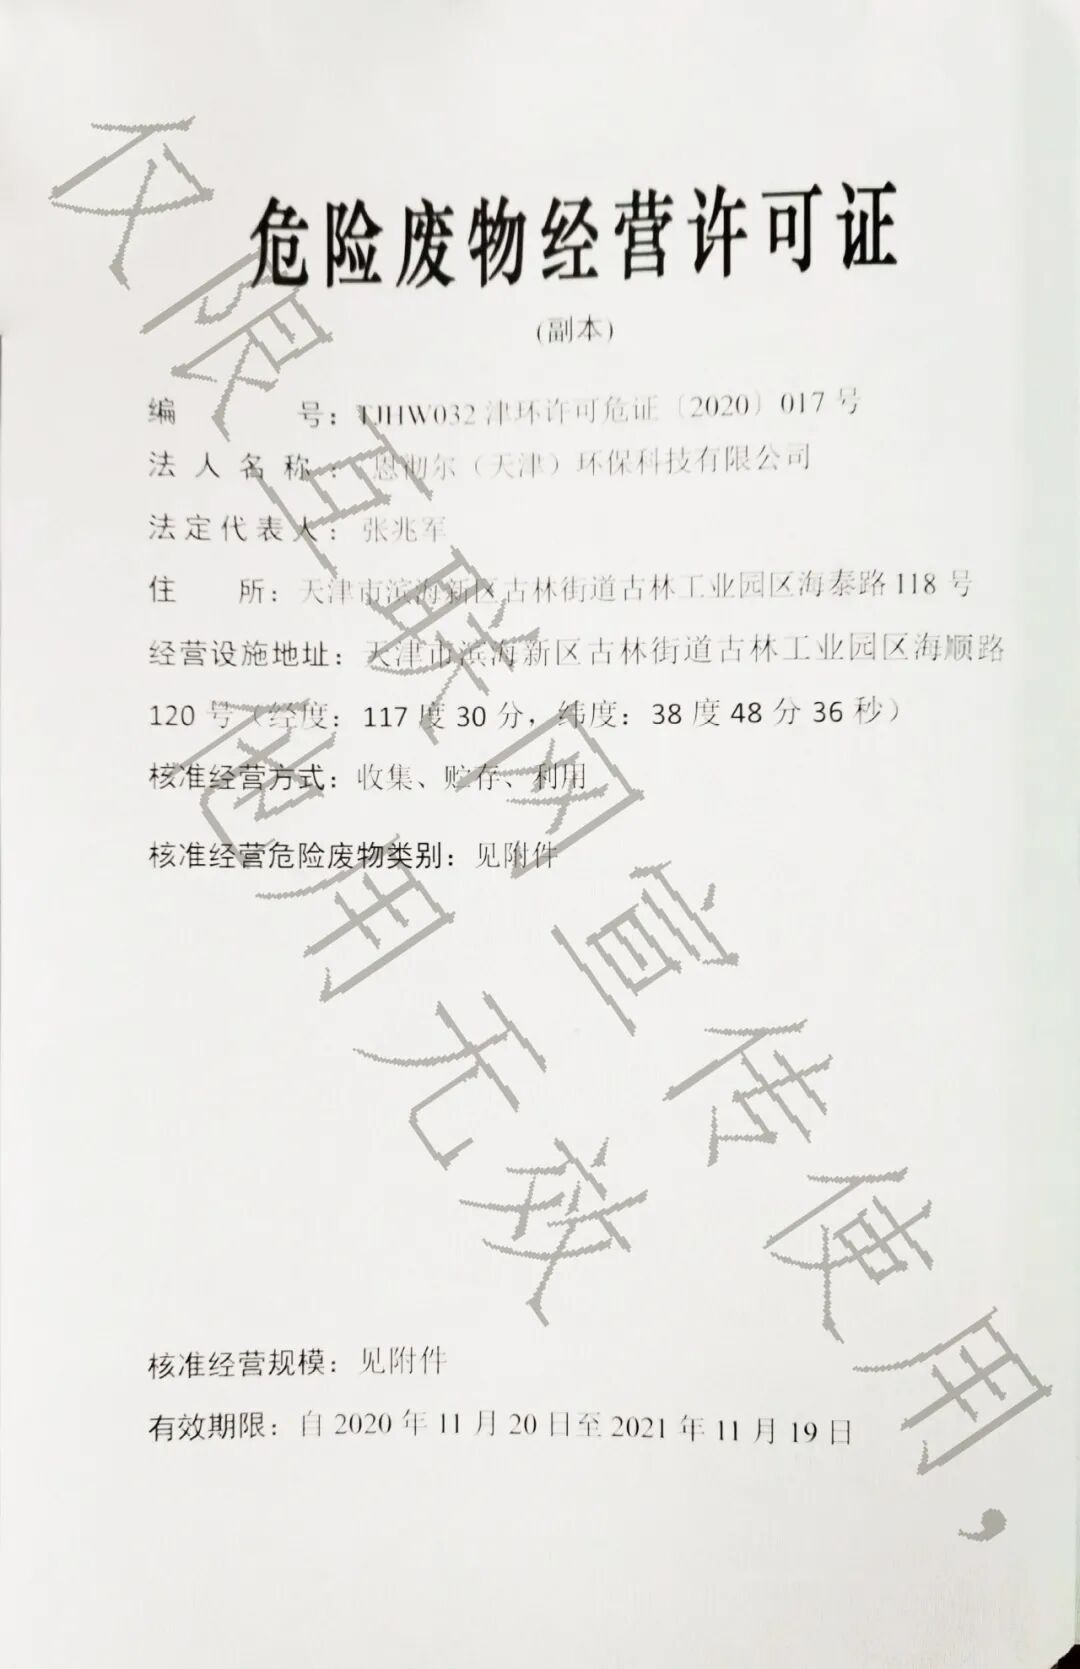 危险废物经营许可证
(副本)
编号：TJHW032津环许可危证〔2020〕017号
法人名称：恩彻尔（天津）环保科技有限公司
法定代表人：张兆军
住所：天津市滨海新区古林街道古林工业园区海泰路118号
经营设施地址：天津市滨海新区古林街道古林工业园区海顺路
120号（经度：117度30分，纬度：38度48分36秒）
核准经营方式：收集、贮存、利用
核准经营危险废物类别：见附件
核准经营规模：见附件
有效期限：自2020年11月20日至2021年11月19日
仅限互联网宣传使用，
他用无效